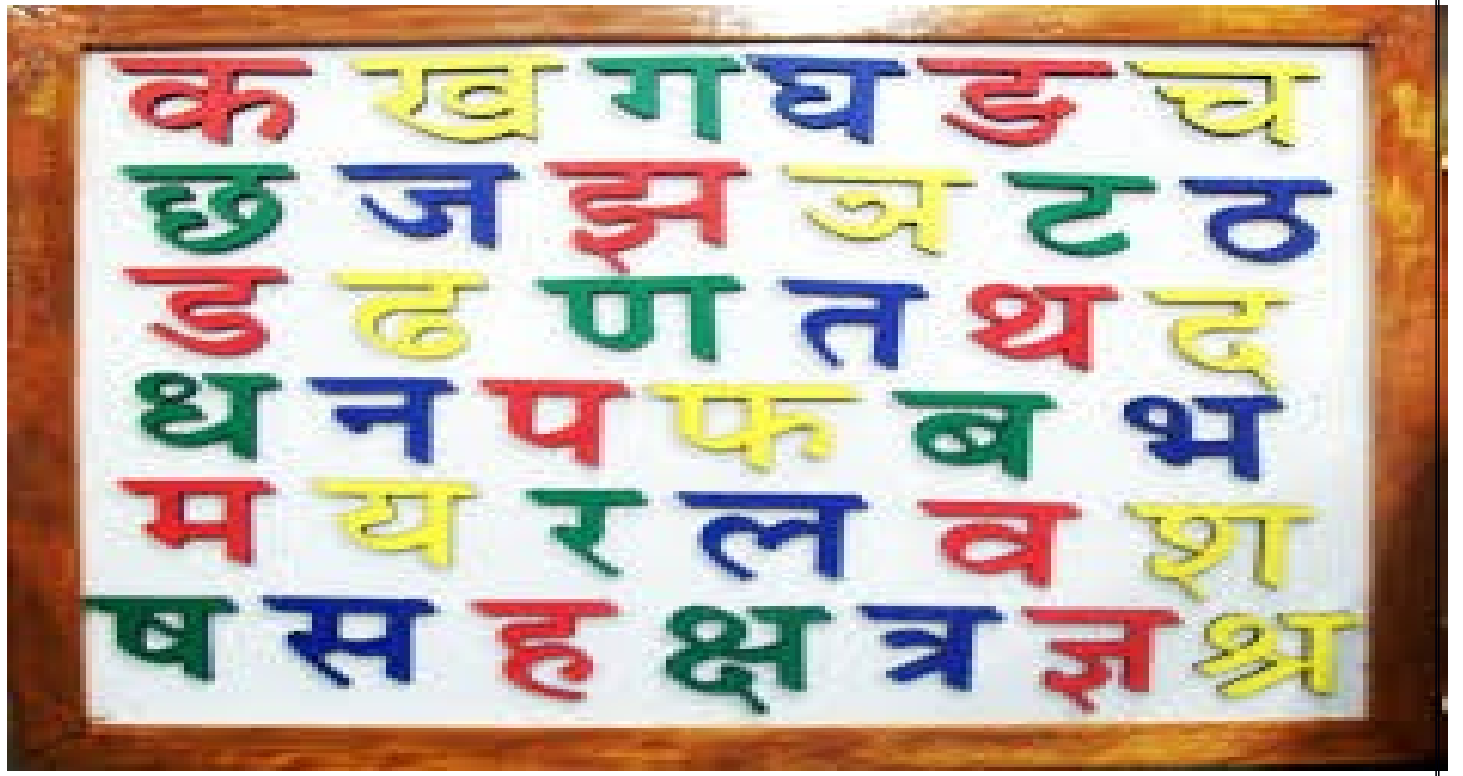 क ख ग घ ङ च
छ ज झ ञ ट ठ
ड ढ ण त थ द
ध न प फ ब भ
म य र ल व श
ष स ह क्ष त्र ज्ञ श्र